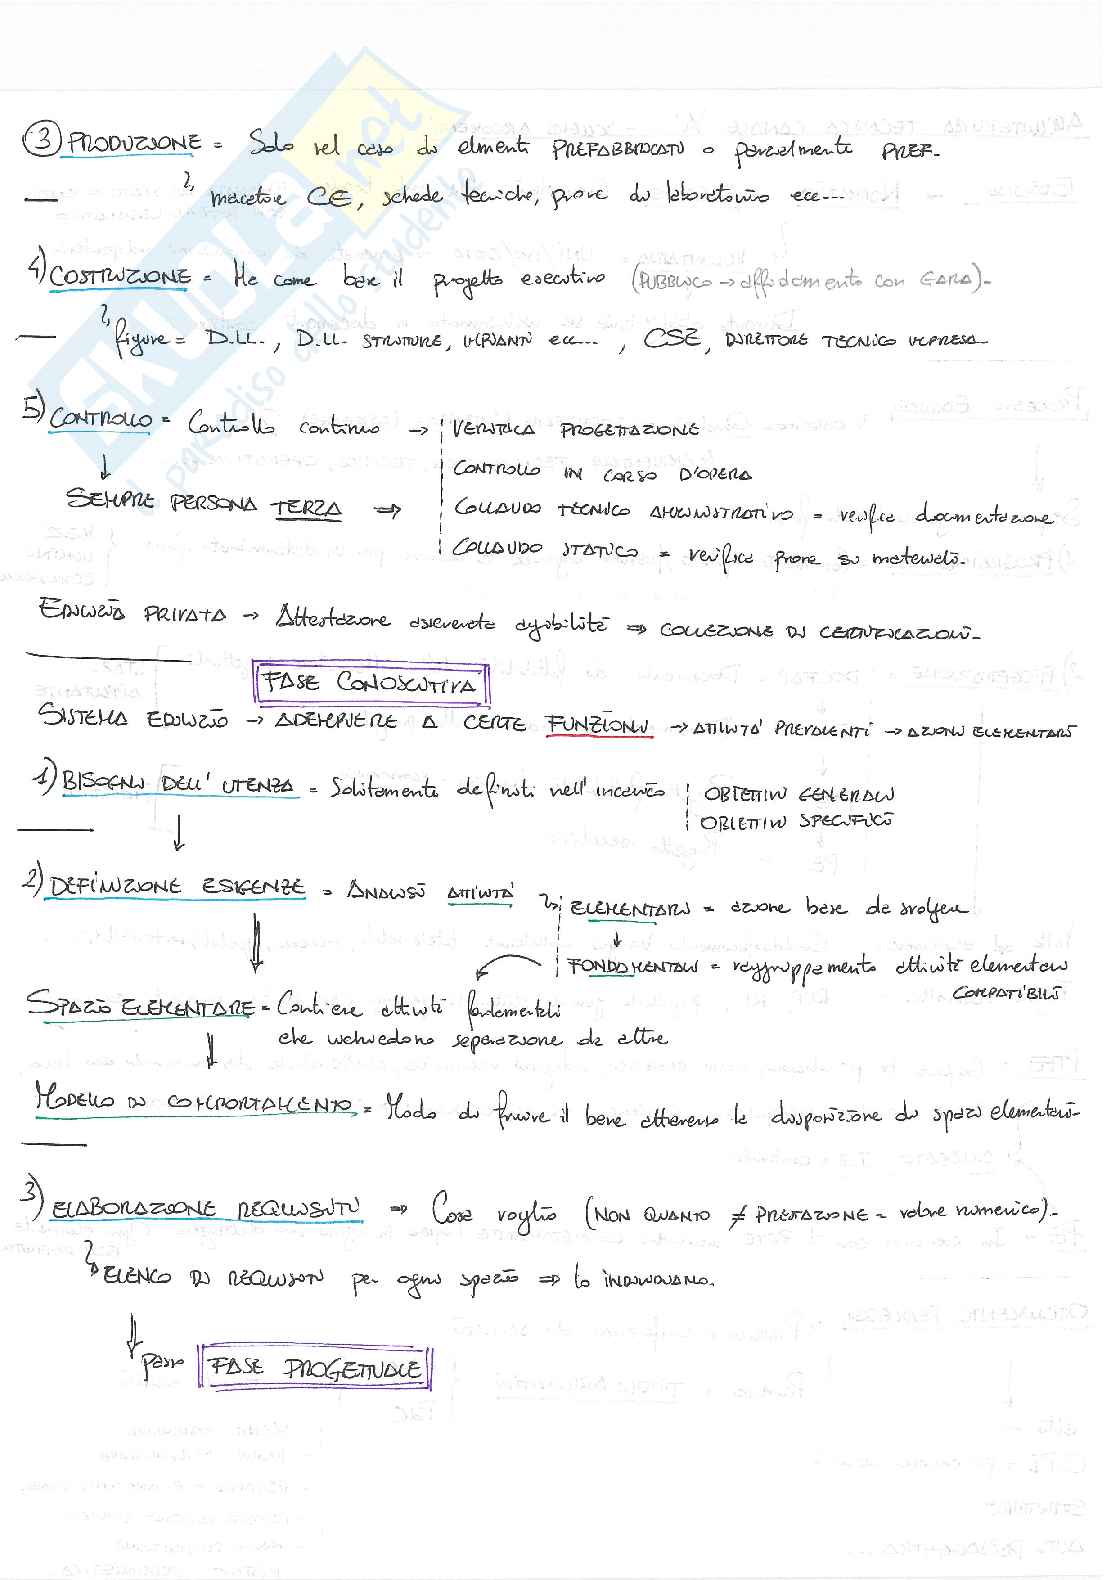 3 PRODUZIONE = Solo nel caso di elementi PREFABBRICATI o parzialmente PREF.
marcatore CE, schede tecniche, prove di laboratorio ecc...
4) COSTRUZIONE = Ha come base il progetto esecutivo (PUBBLICO → affidamento con GARA).
figure = D.LL., D.LL. STRUTTURE, IMPIANTI ecc..., CSE, DIRETTORE TECNICO IMPRESA
5) CONTROLLO = Controllo continuo → VERIFICA PROGETTAZIONE
CONTROLLO IN CORSO D'OPERA
↓ SEMPRE PERSONA TERZA ⇒ COLLAUDO TECNICO AMMINISTRATIVO = verifica documentazione
COLLAUDO STATICO = verifica prove su materiali.
EDILIZIA PRIVATA → Attestazione asseverata agibilità ⇒ COLLEZIONE DI CERTIFICAZIONI.
FASE CONOSCITIVA
SISTEMA EDILIZIO → ADEMPIERE A CERTE FUNZIONI → ATTIVITA' PREVALENTI → AZIONI ELEMENTARI
1) BISOGNI DELL'UTENZA = Solitamente definiti nell'incarico OBIETTIVI GENERALI
OBIETTIVI SPECIFICI
↓
2) DEFINIZIONE ESIGENZE = ANALISI ATTIVITA' ELEMENTARI = azione base da svolgere
↓
FONDAMENTALI = raggruppamento attività elementari
COMPATIBILI
SPAZIO ELEMENTARE = Contiene attività fondamentali
che richiedono separazione da altre
↓
MODELLO DI COMPORTAMENTO = Modo di fruire il bene attraverso la disposizione di spazi elementari.
3) ELABORAZIONE REQUISITI ⇒ Cosa voglio (NON QUANTO ≠ PRESTAZIONE = valore numerico).
ELENCO DI REQUISITI per ogni spazio ⇒ lo INDIVIDUANO.
↓ passo FASE PROGETTUALE
SKUOLA.net
il paradiso dello studente